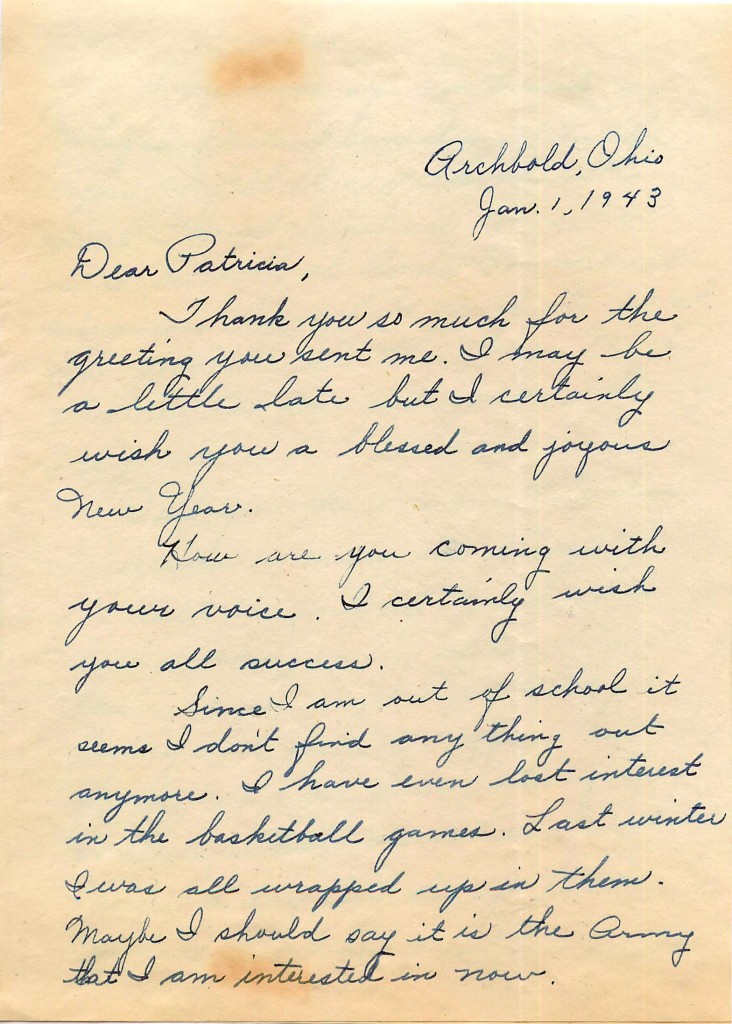 Archbold, Ohio
Jan. 1, 1943
Dear Patricia,
Thank you so much for the
greeting you sent me. I may be
a little late but I certainly
wish you a blessed and joyous
New Year.
How are you coming with
your voice. I certainly wish
you all success.
Since I am out of school it
seems I don't find any thing out
anymore. I have even lost interest
in the basketball games. Last winter
I was all wrapped up in them.
Maybe I should say it is the Army
that I am interested in now.